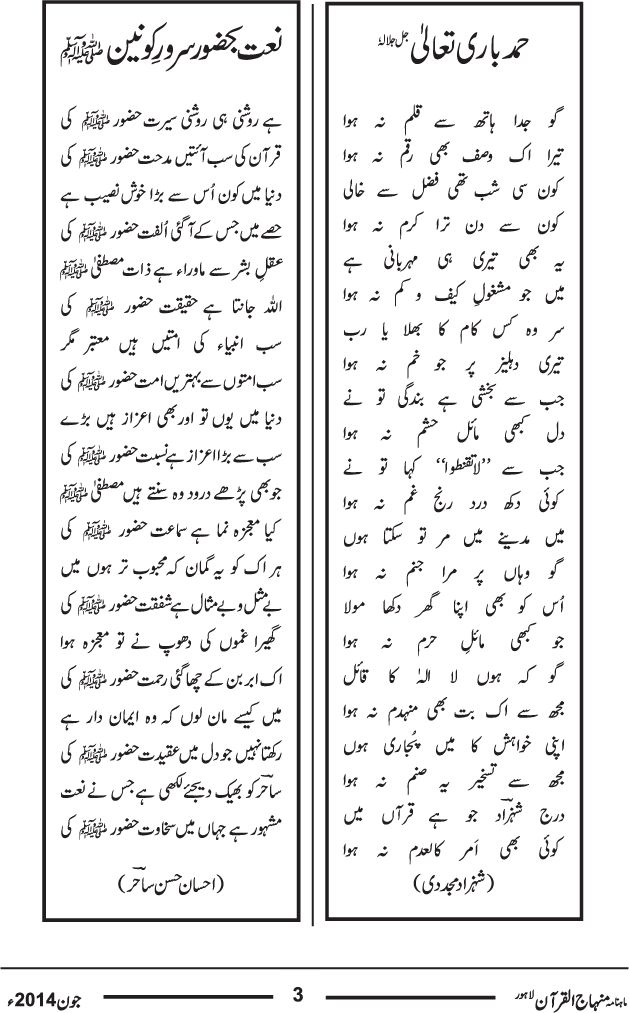 حمد باری تعالیٰ جل جلالہٗ
گو جدا ہاتھ سے قلم نہ ہوا
تیرا اک وصف بھی رقم نہ ہوا
کون سی شب تھی فضل سے خالی
کون سے دن ترا کرم نہ ہوا
یہ بھی تیری ہی مہربانی ہے
میں جو مشغولِ کیف و کم نہ ہوا
سر وہ کس کام کا بھلا یا رب
تیری دہلیز پر جو خم نہ ہوا
جب سے بخشی ہے بندگی تو نے
دل کبھی مائل حشم نہ ہوا
جب سے ’’لاتقنطوا‘‘ کہا تو نے
کوئی دکھ درد رنج غم نہ ہوا
میں مدینے میں مر تو سکتا ہوں
گو وہاں پر مرا جنم نہ ہوا
اُس کو بھی اپنا گھر دکھا مولا
جو کبھی مائلِ حرم نہ ہوا
گو کہ ہوں لا الہٰ کا قائل
مجھ سے اک بت بھی منہدم نہ ہوا
اپنی خواہش کا میں پُجاری ہوں
مجھ سے تسخیر یہ صنم نہ ہوا
درج شہزادؔ جو ہے قرآں میں
کوئی بھی اَمر کالعدم نہ ہوا
(شہزاد مجددی)
نعت بحضور سرورِ کونین ﷺ
ہے روشنی ہی روشنی سیرت حضور ﷺ کی
قرآن کی سب آئتیں مدحت حضور ﷺ کی
دنیا میں کون اُس سے بڑا خوش نصیب ہے
حصے میں جس کے آگئی اُلفت حضور ﷺ کی
عقلِ بشر سے ماوراء ہے ذات مصطفیٰ ﷺ
اللہ جانتا ہے حقیقت حضور ﷺ کی
سب انبیاء کی امتیں ہیں معتبر مگر
سب امتوں سے بہتریں امت حضور ﷺ کی
دنیا میں یوں تو اور بھی اعزاز ہیں بڑے
سب سے بڑا اعزاز ہے نسبت حضور ﷺ کی
جو بھی پڑھے درود وہ سنتے ہیں مصطفیٰ ﷺ
کیا معجزہ نما ہے سماعت حضور ﷺ کی
ہر اک کو یہ گمان کہ محبوب تر ہوں میں
بے مثل و بے مثال ہے شفقت حضور ﷺ کی
گھیرا غموں کی دھوپ نے تو معجزہ ہوا
اک ابر بن کے چھا گئی رحمت حضور ﷺ کی
میں کیسے مان لوں کہ وہ ایمان دار ہے
رکھتا نہیں جو دل میں عقیدت حضور ﷺ کی
ساحرؔ کو بھیک دیجئے لکھی ہے جس نے نعت
مشہور ہے جہاں میں سخاوت حضور ﷺ کی
(احسان حسن ساحرؔ)
ماہنامہ منہاج القرآن لاہور
3
جون 2014ء